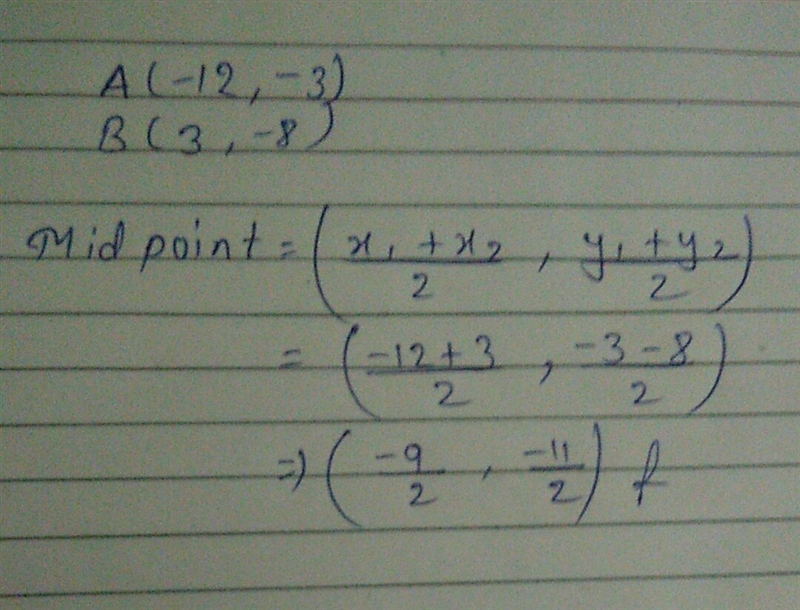 A(-12, -3)
B(3, -8)
Mid point = (x₁ + x₂ / 2 , y₁ + y₂ / 2)
= (-12 + 3 / 2 , -3 - 8 / 2)
=> (-9 / 2 , -11 / 2)